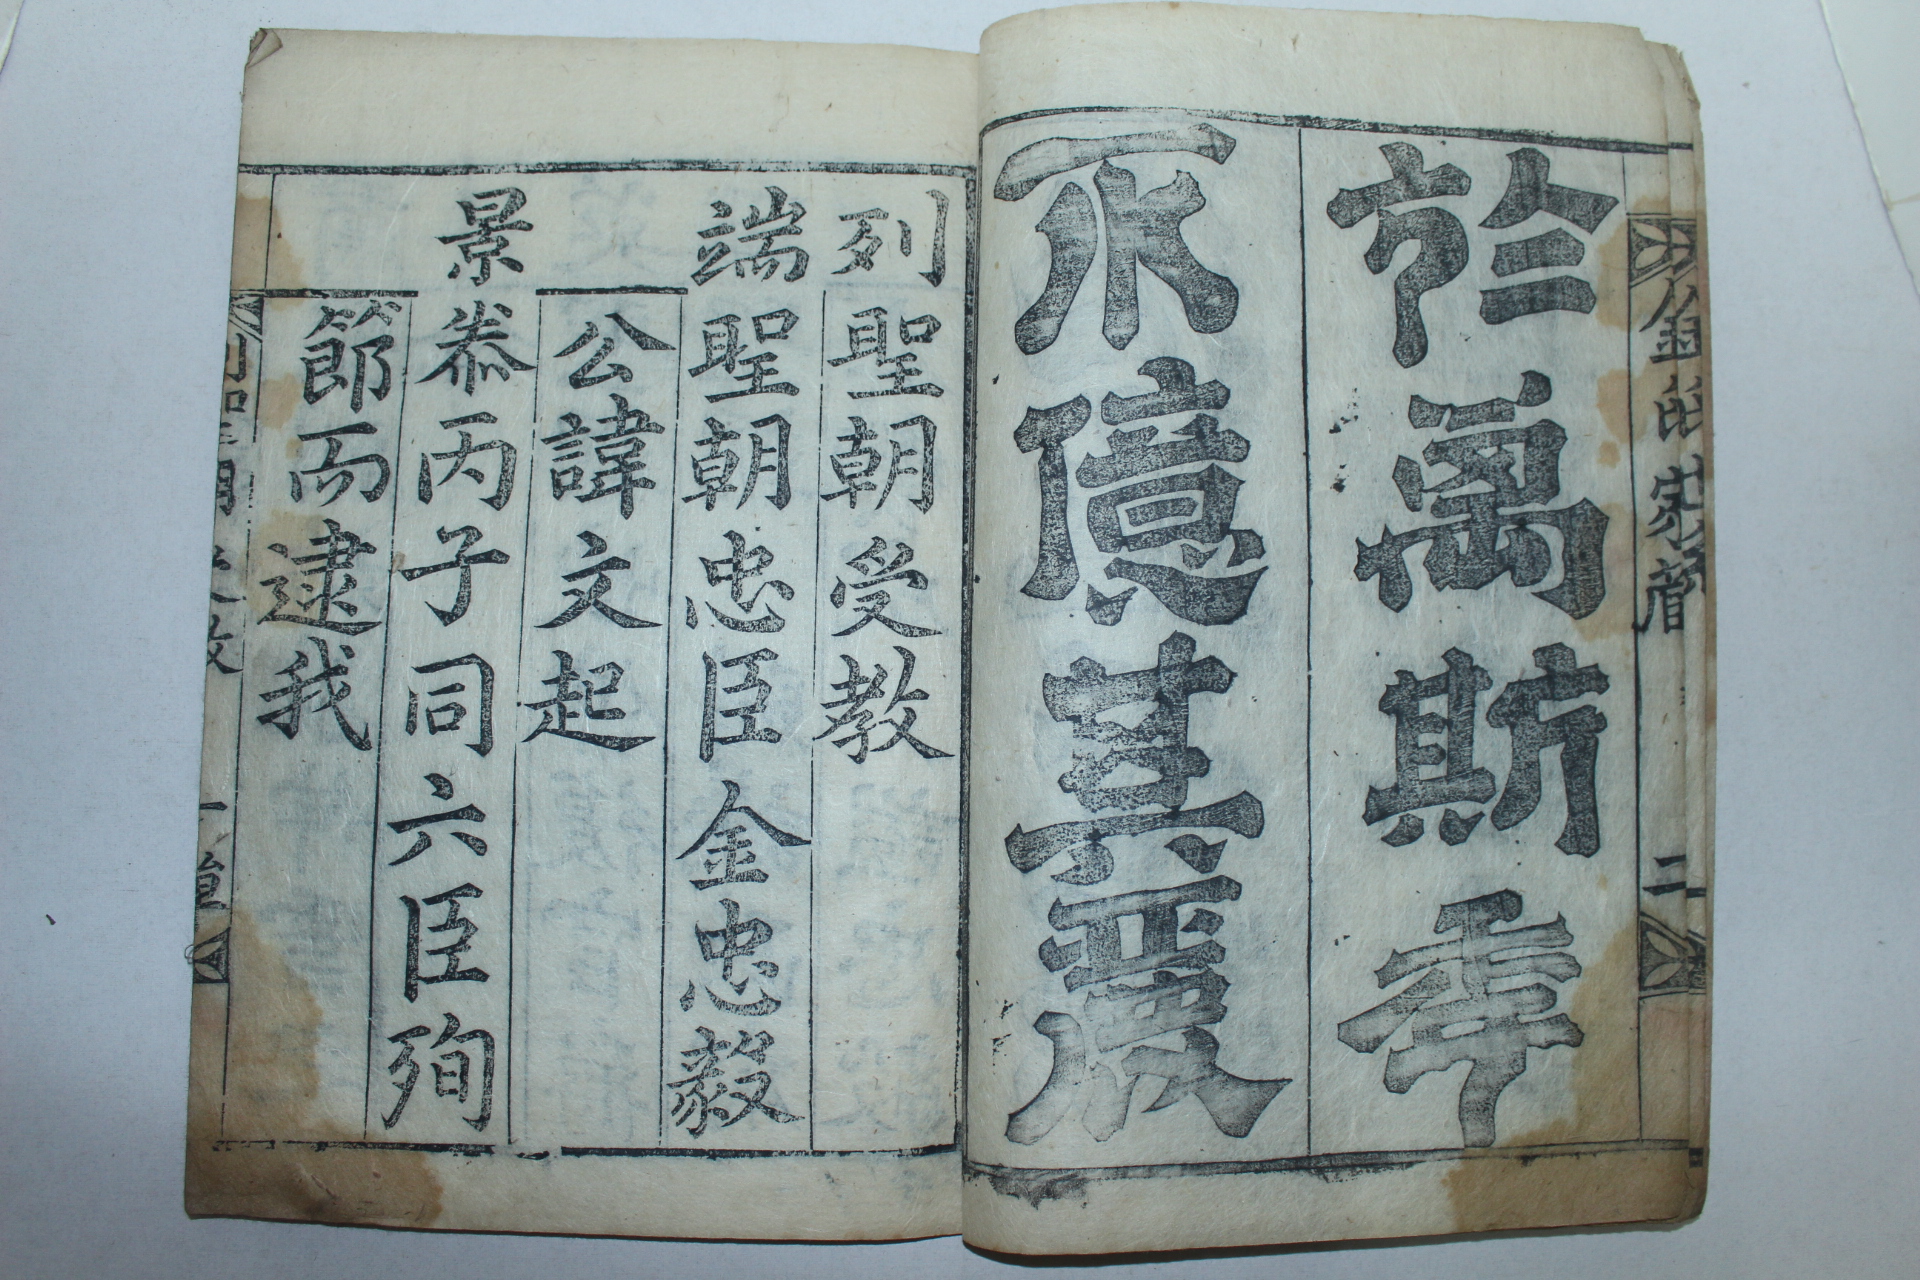 金氏家譜 二
於萬斯年
不億其麗
列聖朝受教
端聖朝忠臣金忠毅
公諱文起
景泰丙子同六臣殉
節而逮我